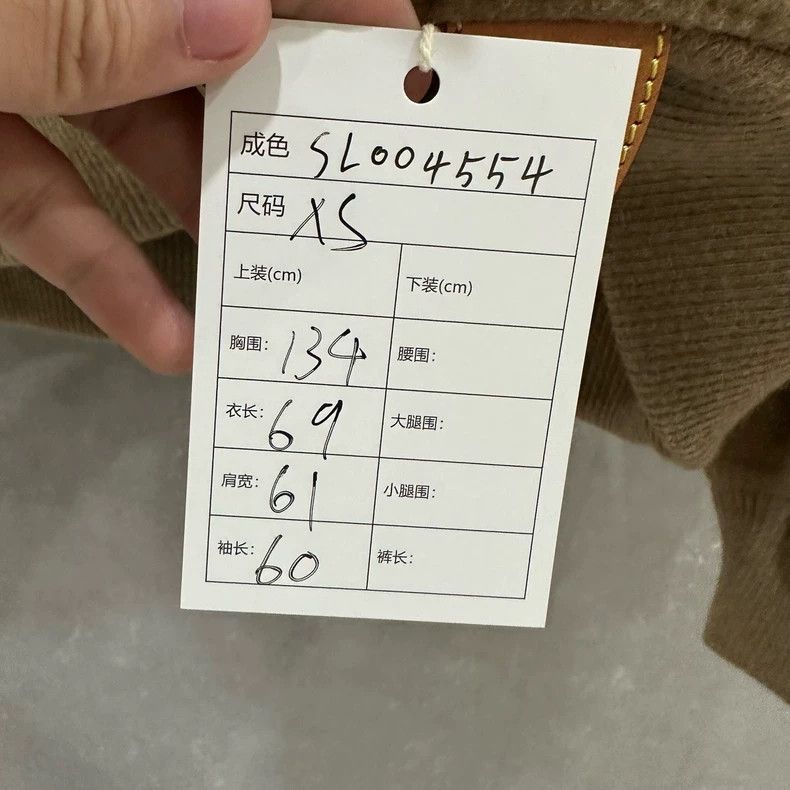 成色 SL004554
尺码 XS
上装(cm) 下装(cm)
胸围: 134 腰围:
衣长: 69 大腿围:
肩宽: 61 小腿围:
袖长: 60 裤长: